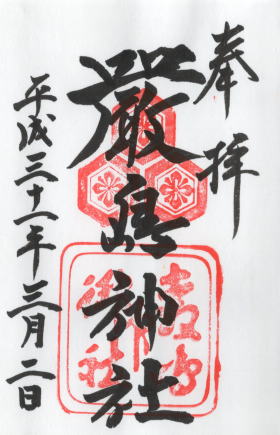 奉拝
嚴島神社
平成三十一年三月二日